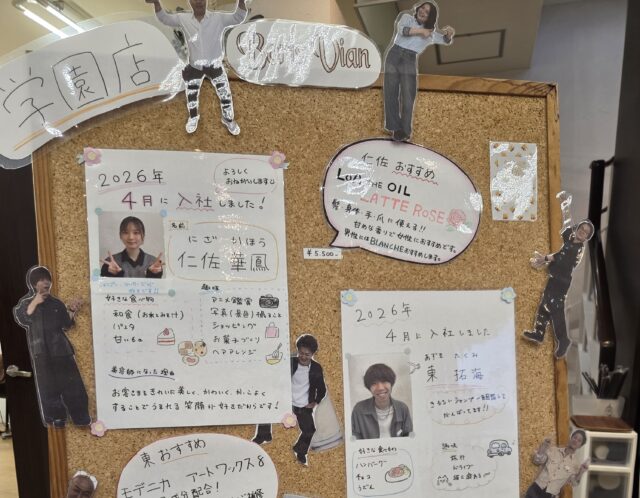 学園店
Vian
2026年
4月に入社しました!
よろしく
おねがいします
名前
にざ りほう
仁佐 華鳳
好きな食べ物
和食(お米とみそ汁)
パスタ
甘いもの
趣味
アニメ鑑賞
写真(景色)撮ること
ショッピング
お菓子づくり
ヘアアレンジ
美容師になった理由
お客さまをきれいに美しく、かわいく、かっこよく
することでうまれる笑顔が好きだからです!
仁佐 おすすめ
THE OIL
LATTE ROSE
髪・身体・手・爪に使える!!
甘めな香りで女性におすすめです。
男性にはBLANCHEおすすめします。
¥5.500-
2026年
4月に入社しました
あずま たくみ
東 拓海
がんばってます!!
好きな食べもの
ハンバーグ
チョコ
うどん
趣味
旅行
ドライブ
東おすすめ
モデニカ アートワックス8